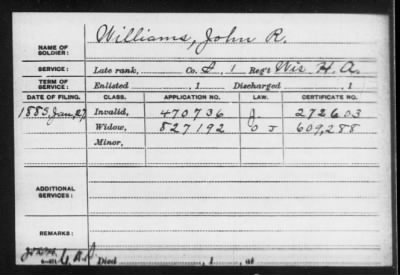 NAME OF SOLDIER: Williams, John R.
SERVICE: Late rank, Co. L, 1 Reg't Wis. H. A.
TERM OF SERVICE: Enlisted , 1 Discharged , 1
DATE OF FILING. CLASS. APPLICATION NO. LAW. CERTIFICATE NO.
1883, Jan, 27 Invalid, 470736 J. 272603
Widow, 827192 O J 609,288
Minor,
ADDITIONAL SERVICES:
REMARKS:
Died , 1 , at